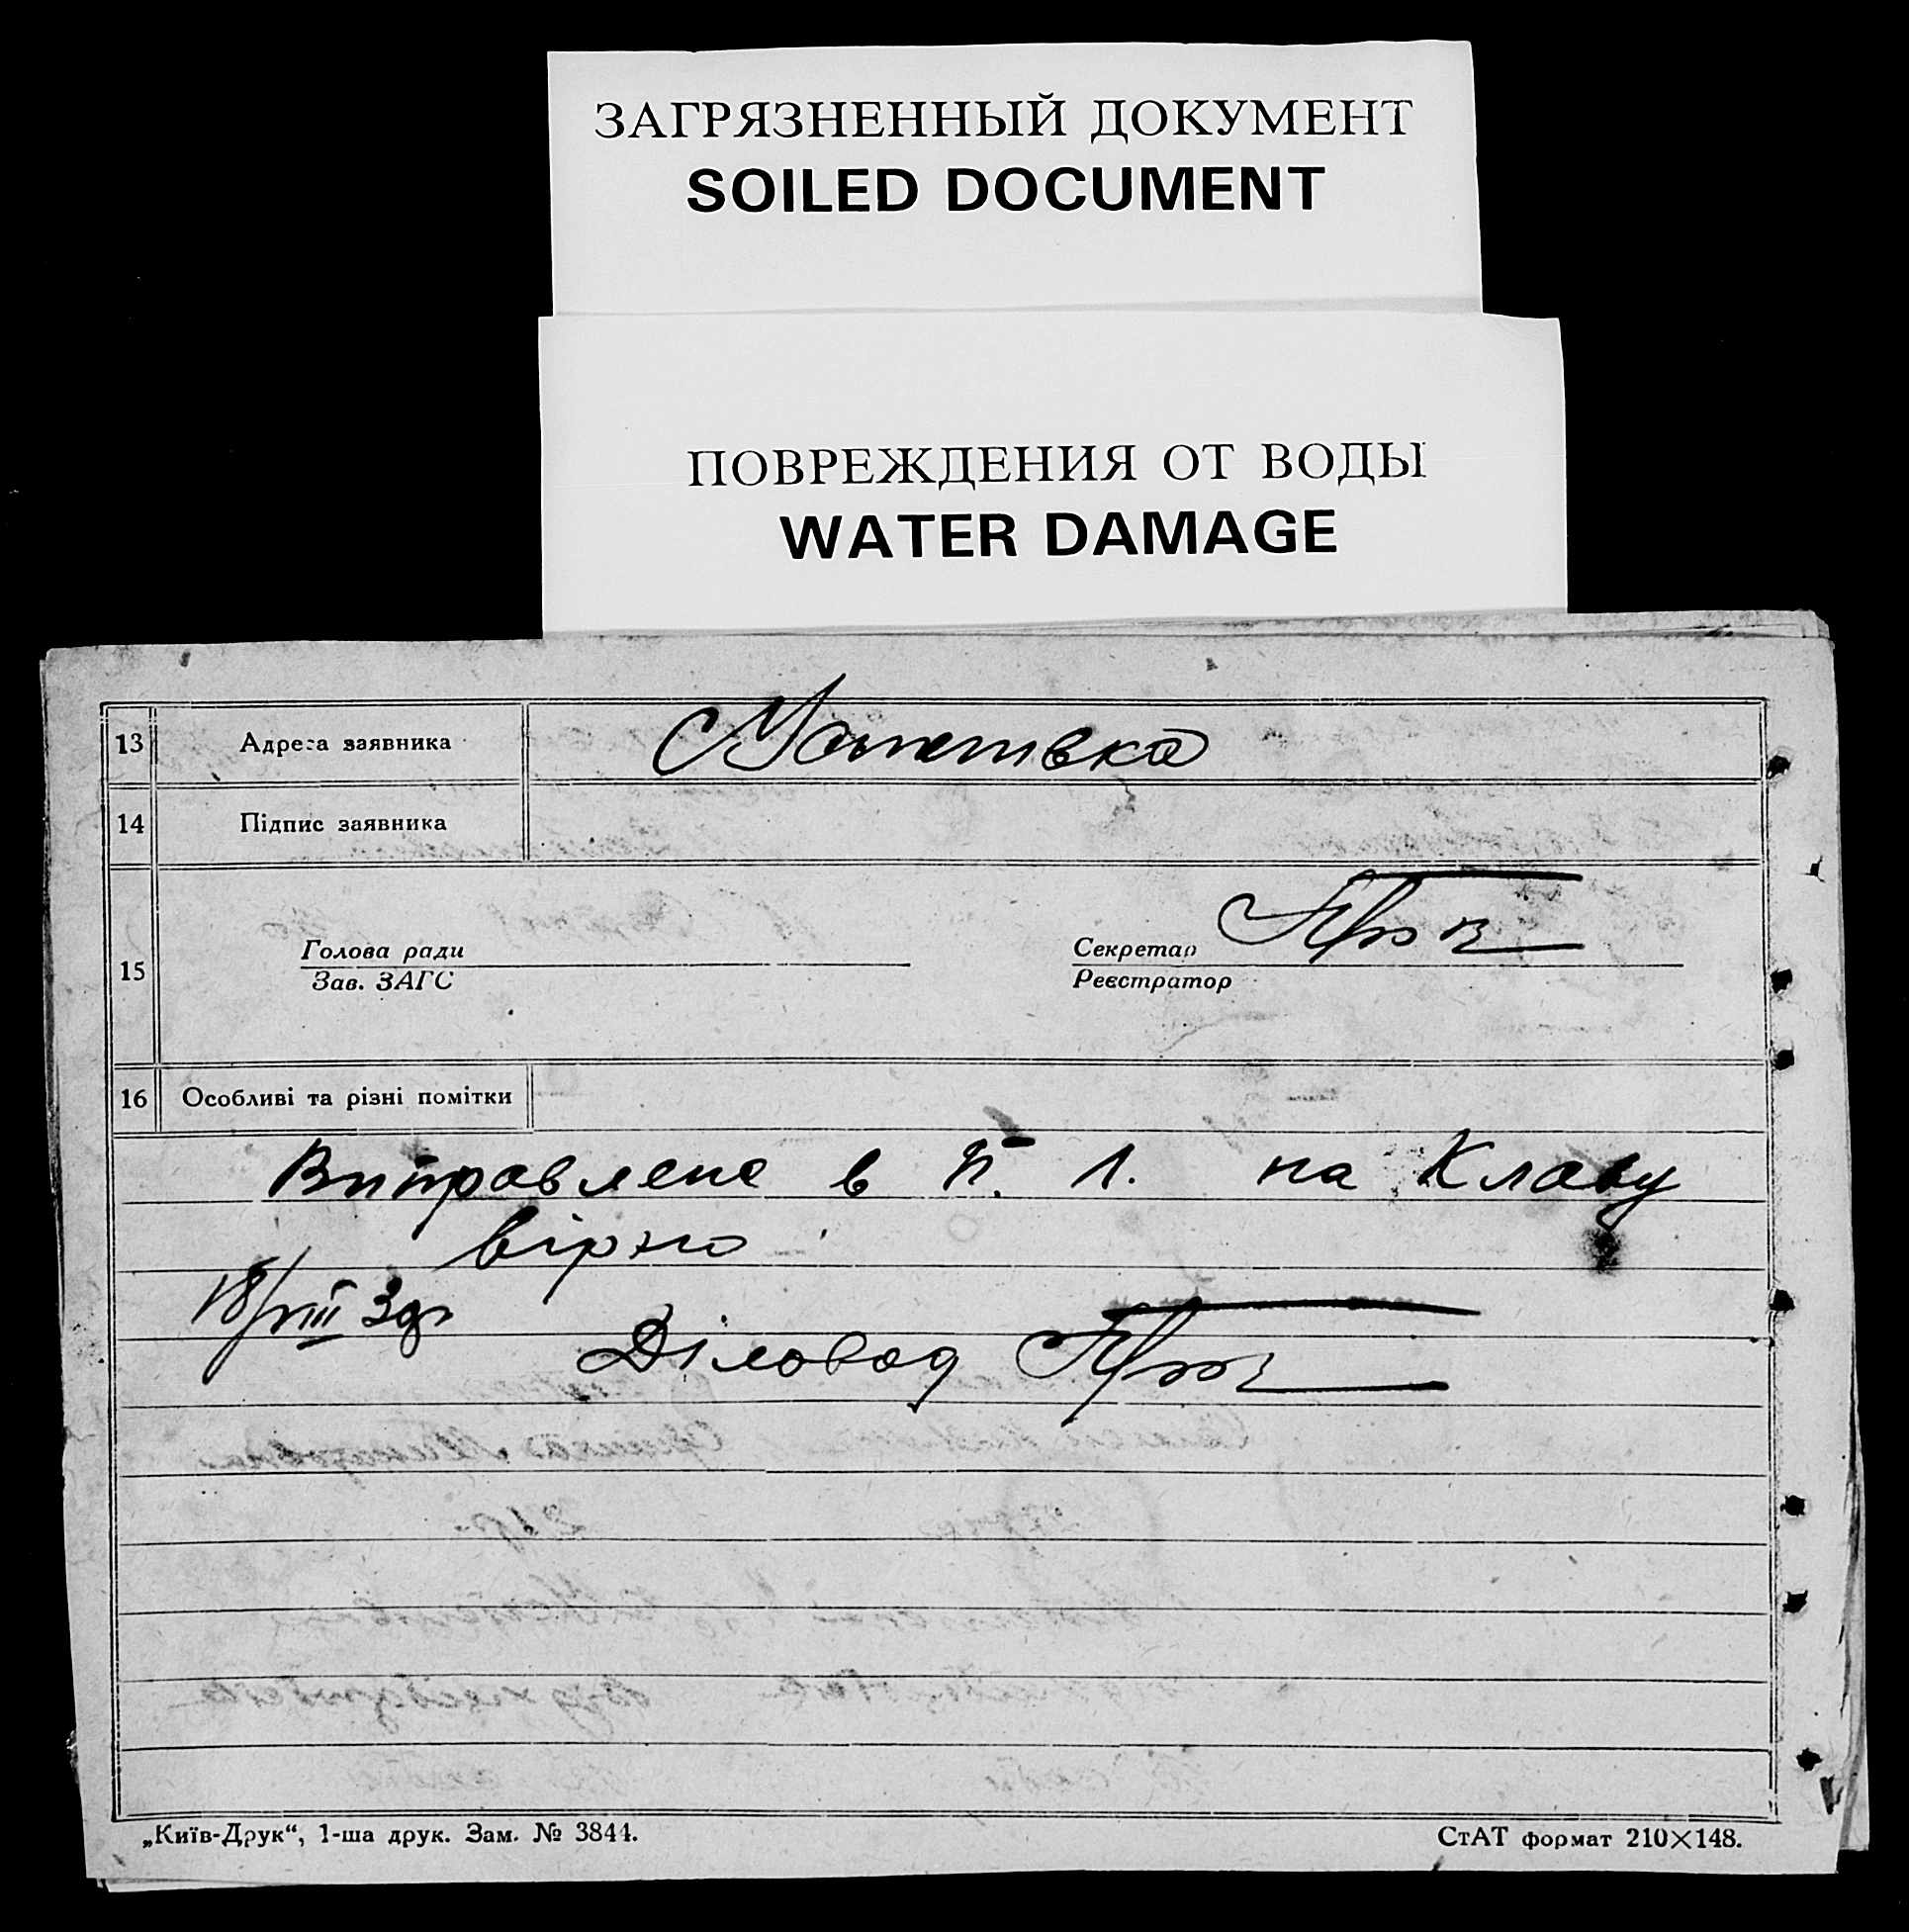 ЗАГРЯЗНЕННЫЙ ДОКУМЕНТ
SOILED DOCUMENT
ПОВРЕЖДЕНИЯ ОТ ВОДЫ
WATER DAMAGE
13 Адреса заявника
14 Підпис заявника
15 Голова ради Секретар
Зав. ЗАГС Реєстратор
16 Особливі та різні помітки
Виправлене в п. 1. на Клаву
вірно
18/VIII 39р
Діловод
„Київ-Друк“, 1-ша друк. Зам. № 3844. СтАТ формат 210×148.